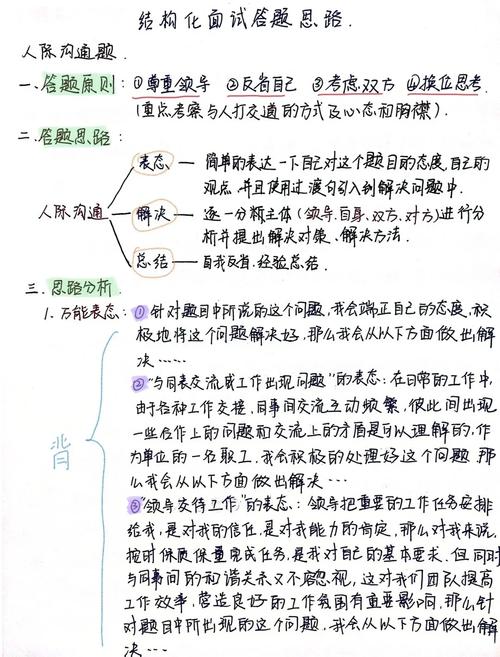 结构化面试答题思路.
人际沟通题.
一、答题原则: ①尊重领导 ②反省自己 ③考虑双方 ④换位思考.
(重点考察与人打交道的方式及心态和胸襟).
二. 答题思路:
人际沟通
表态 — 简单的表达一下自己对这个题目的态度,自己的
观点,并且使用过渡句引入到解决问题中.
解决 — 逐一分析主体(领导.自身.双方.对方)进行分
析并提出解决对策、解决方法.
总结 — 自我反省.经验总结.
三. 思路分析.
1. 万能表态: ①针对题目中所说的这个问题,我会端正自己的态度,积
极地将这个问题解决好,那么我会从以下方面做出解
决……
背
②"与同事交流或工作出现问题"的表态:在日常的工作中,
由于各种工作交接,同事间交流互动频繁,彼此间出现
一些合作上的问题和交流上的矛盾是可以理解的,作
为单位的一名职工,我会积极的处理好这个问题,那
么我会从以下方面做出解决…
③"领导交待工作"的表态:领导把重要的工作任务安排
给我,是对我的信任,是对我能力的肯定,那么对我来说,
按时保质保量完成任务,是我对自己的基本要求.但同时
与同事间的和谐关系又不容忽视,这对我们团队提高
工作效率,营造良好的工作氛围有重要影响,那么针
对题目中所出现的这个问题,我会从以下方面做出
解决…